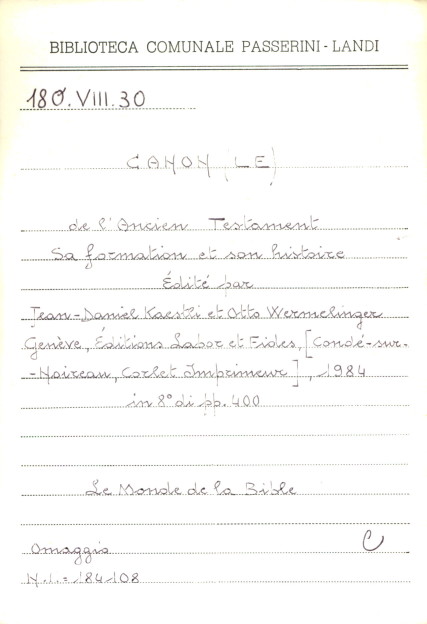 BIBLIOTECA COMUNALE PASSERINI - LANDI
180.VIII.30
CANON (LE)
de l'Ancien Testament
Sa formation et son histoire
Édité par
Jean-Daniel Kaestli et Otto Wermelinger
Genève, Éditions Labor et Fides, [Condé-sur-
-Noireau, Corlet Imprimeur], 1984
in 8° di pp. 400
Le Monde de la Bible
Omaggio C
N.I.= 184108